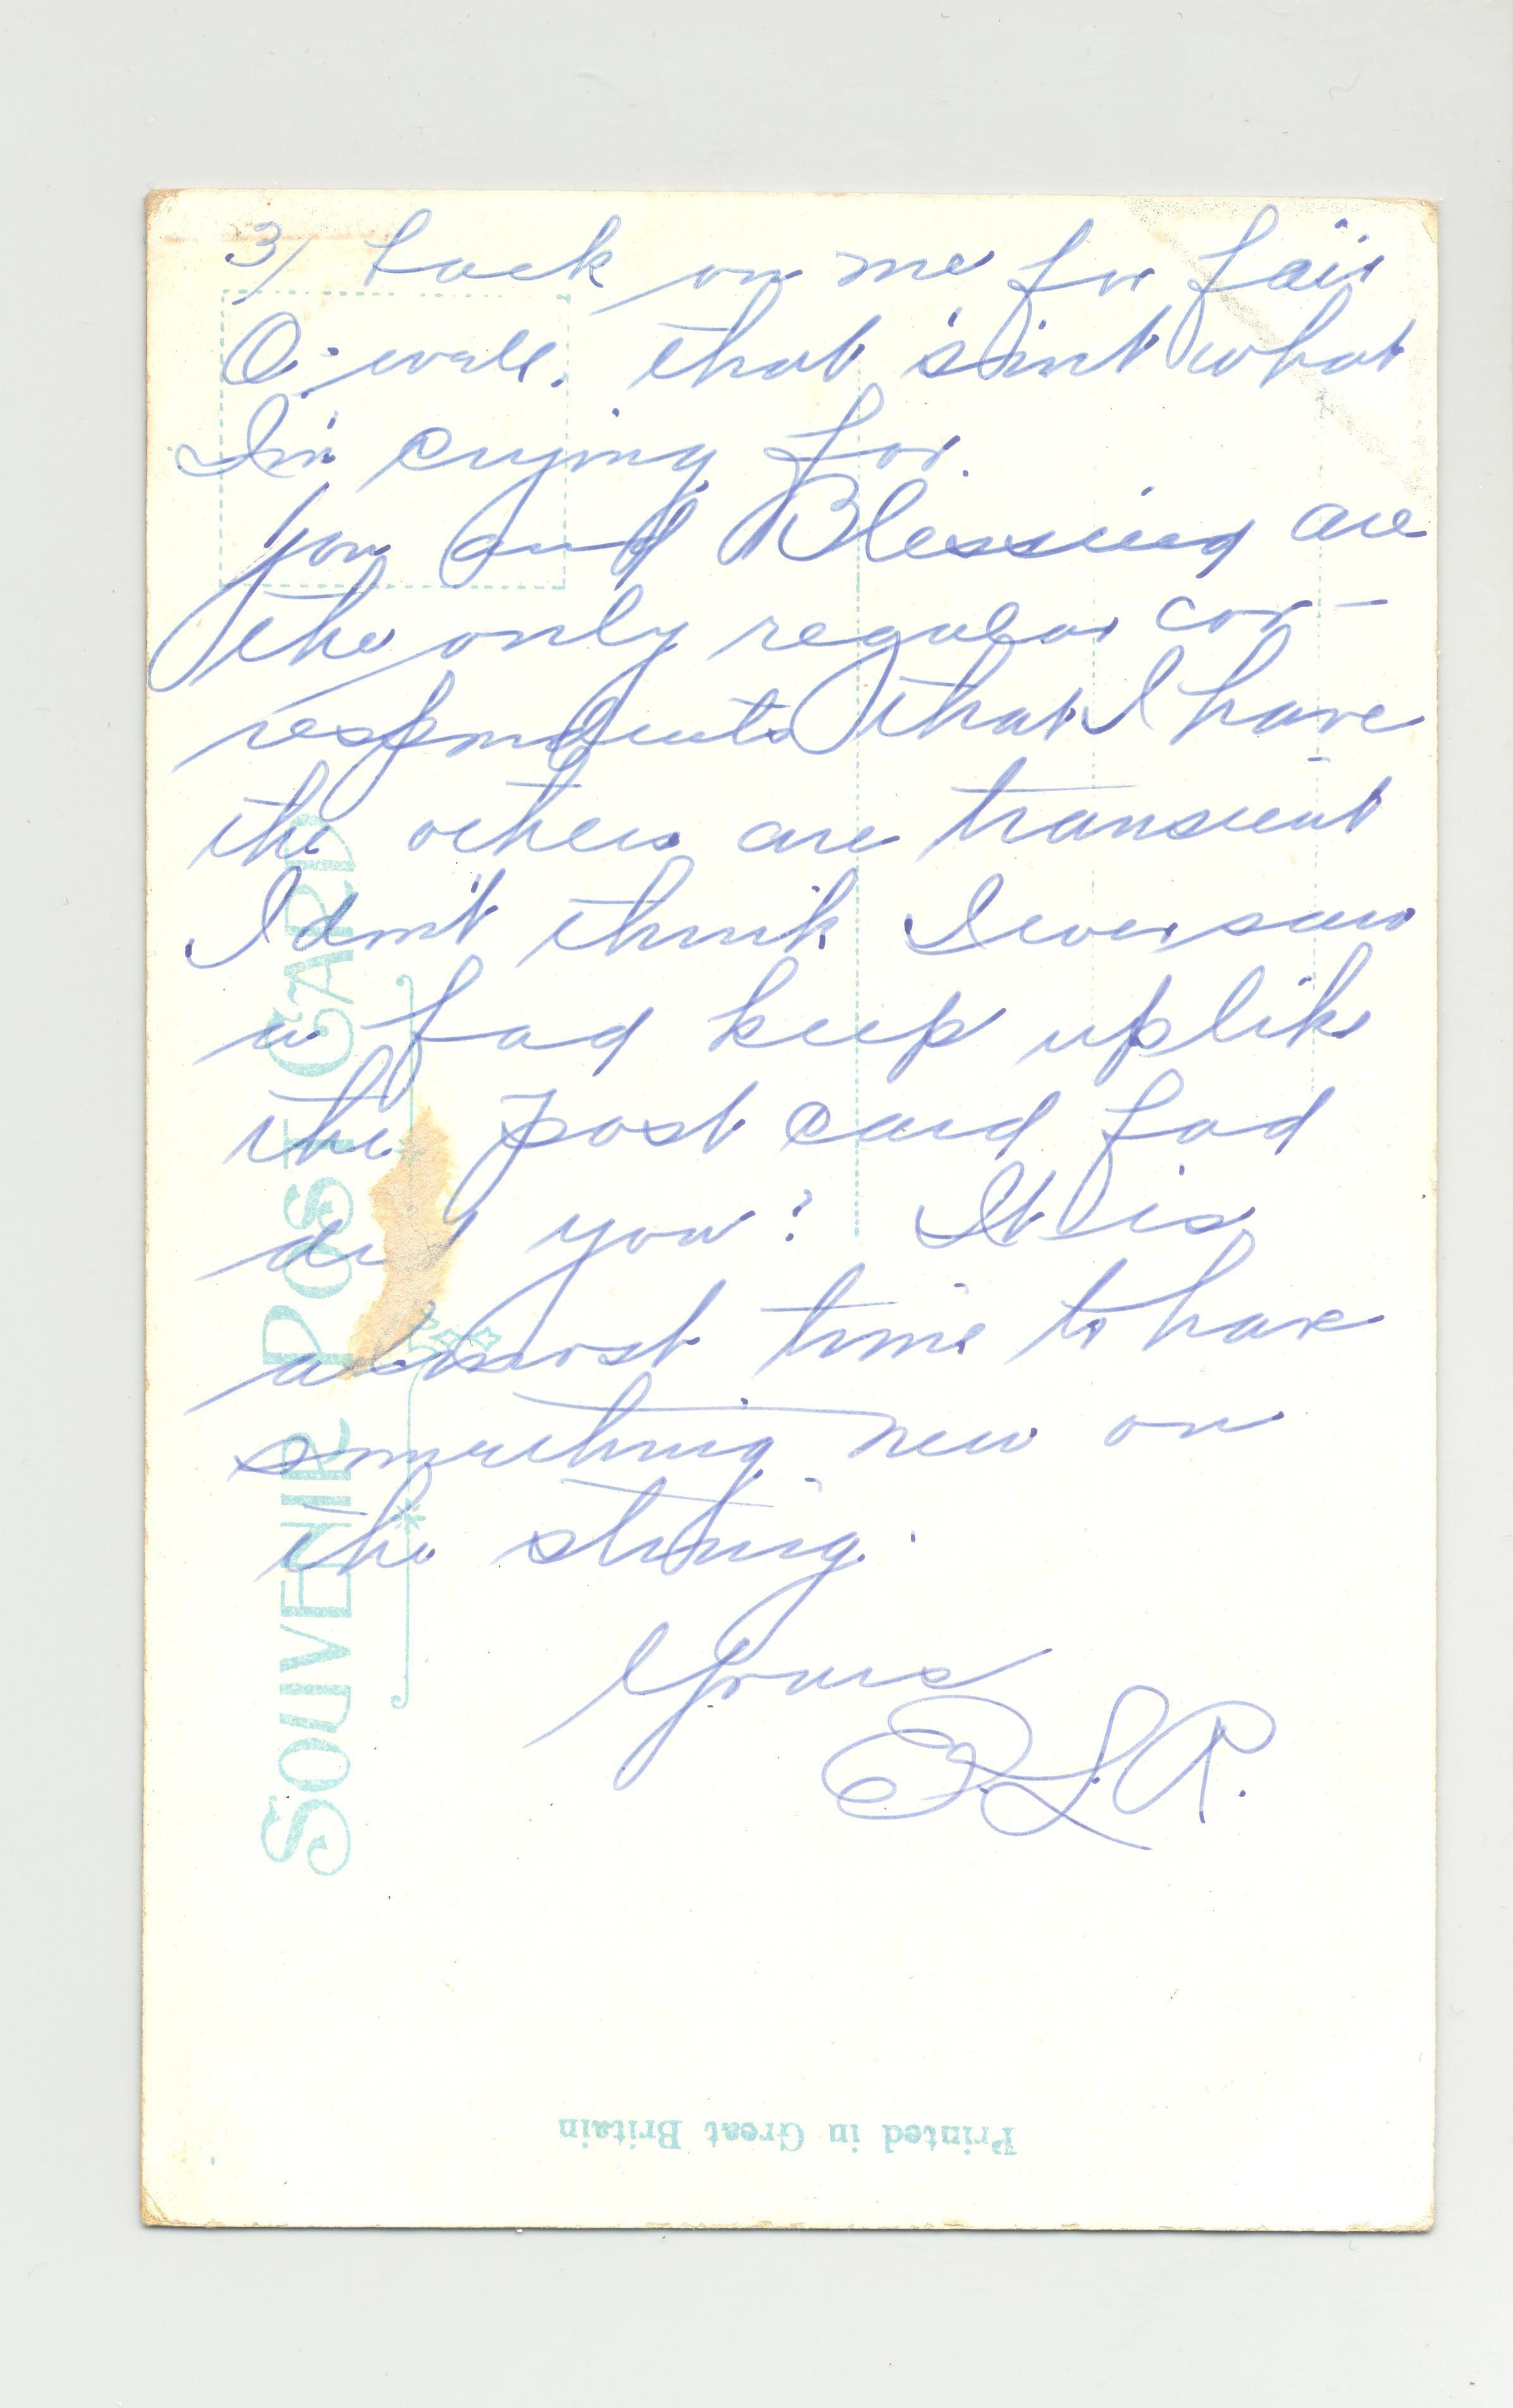 3/ back on me for fair
O. well. that 'sint what
I'm crying for.
you and Blessing are
the only regular cor-
respondents that I have
the others are transient
I don't think I ever saw
a fad keep up like
the post card fad
did you? It is
almost time to have
something new on
the string.
Yours
E.L.R.
SOUVENIR POST CARD
Printed in Great Britain